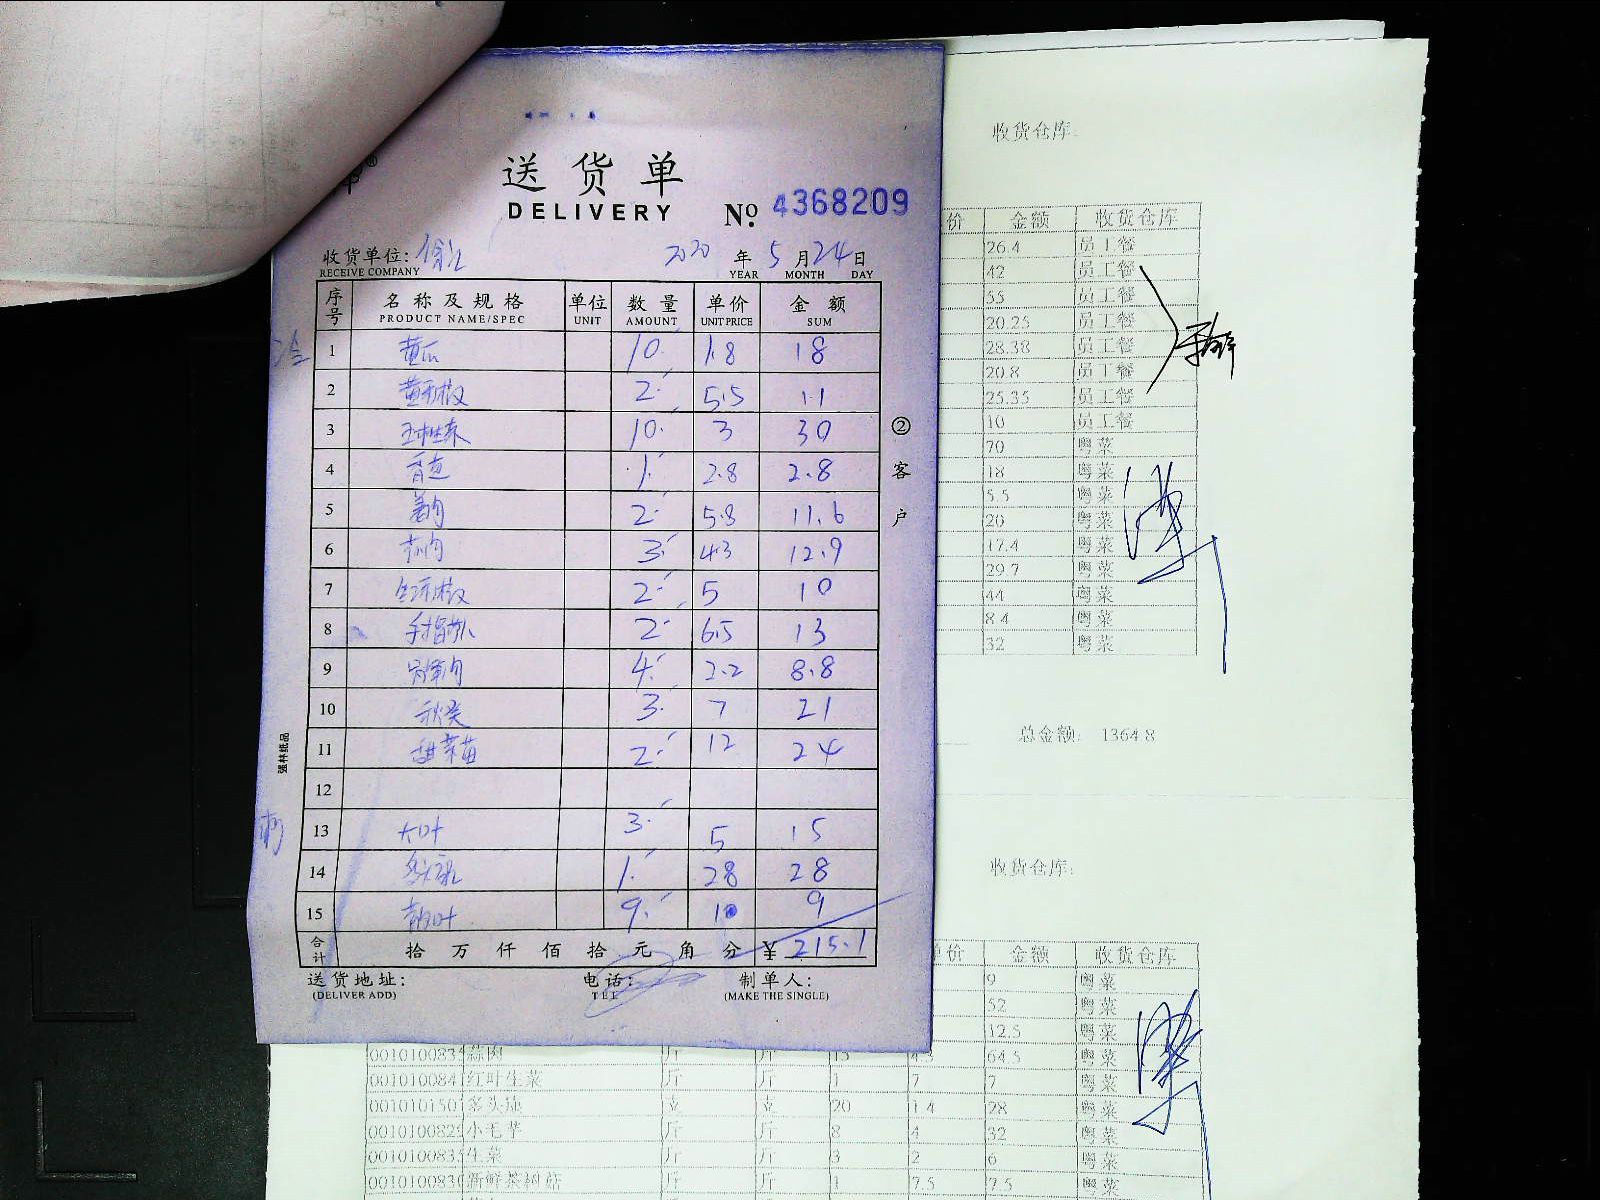 送货单
DELIVERY
No. 4368209
收货单位:
RECEIVE COMPANY
2020 年 5 月 24 日
YEAR MONTH DAY
序号 名称及规格 单位 数量 单价 金额
PRODUCT NAME/SPEC UNIT AMOUNT UNIT PRICE SUM
1 黄瓜 10 1.8 18
2 2 5.5 11
3 10 3 30
4 1 2.8 2.8
5 姜肉 2 5.8 11.6
6 蒜肉 3 4.3 12.9
7 2 5 10
8 2 6.5 13
9 4 2.2 8.8
10 秋葵 3 7 21
11 甜菜苗 2 12 24
12
13 大叶 3 5 15
14 1 28 28
15 9 1 9
合计 拾 万 仟 佰 拾 元 角 分 ¥ 215.1
送货地址: 电话: 制单人:
(DELIVER ADD) TEL (MAKE THE SINGLE)
② 客户
强林纸品
收货仓库:
价 金额 收货仓库
26.4 员工餐
42 员工餐
55 员工餐
20.25 员工餐
28.38 员工餐
20.8 员工餐
25.35 员工餐
10 员工餐
70 粤菜
18 粤菜
5.5 粤菜
20 粤菜
17.4 粤菜
29.7 粤菜
44 粤菜
8.4 粤菜
32 粤菜
总金额: 1364.8
收货仓库:
单价 金额 收货仓库
9 粤菜
52 粤菜
12.5 粤菜
001010083 蒜肉 斤 斤 15 4.3 64.5 粤菜
001010084 红叶生菜 斤 斤 1 7 7 粤菜
001010150 支 支 20 1.4 28 粤菜
001010082 小毛芋 斤 斤 8 4 32 粤菜
001010083 生菜 斤 斤 3 2 6 粤菜
001010083 新鲜茶树菇 斤 斤 1 7.5 7.5 粤菜